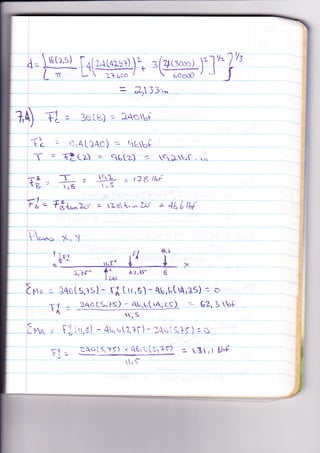 d = { 16(2,5) / π [ 4( 2,1(4257) / 27600 )² + 3( 2,1(3000) / 60000 )² ]^1/2 }^1/3
= 2,133 in
7,4) F_C^y = 30(8) = 240 lbf
F_C^z = 0,4(240) = 96 lbf
T = F_C^z(2) = 96(2) = 192 lbf . in
F_B^z = T / 1,5 = 192 / 1,5 = 128 lbf
F_B^y = F_B^z tan 20° = 128 tan 20° = 46,6 lbf
Plano x, y
F_O^y F_A^y 46,6
O 11,5" X
5,75" 240 A 2,75" B
ΣM_O = 240(5,75) - F_A^y(11,5) - 46,6(14,25) = 0
F_A^y = 240(5,75) - 46,6(14,25) / 11,5 = 62,3 lbf
ΣM_A = F_O^y(11,5) - 46,6(2,75) - 240(5,75) = 0
F_O^y = 240(5,75) + 46,6(2,75) / 11,5 = 131,1 lbf